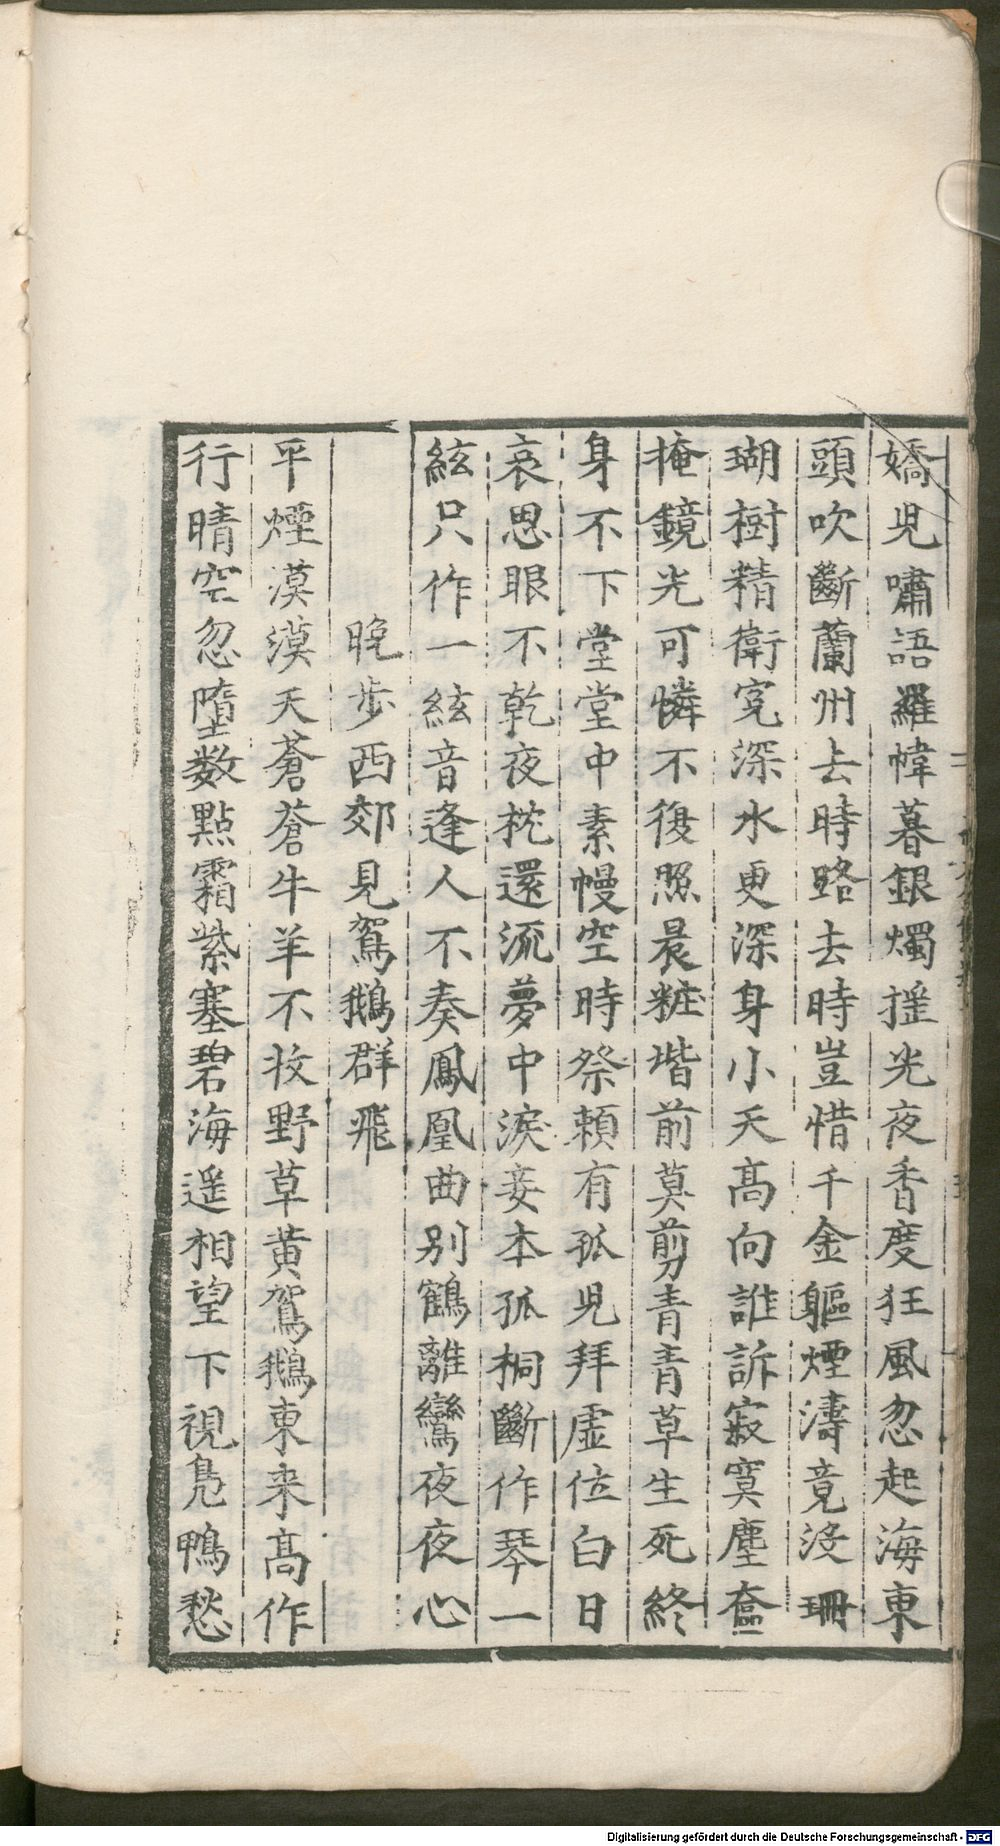 嬌児嘯語羅幃暮銀燭揺光夜香度狂風忽起海東
頭吹斷蘭州去時路去時豈惜千金軀煙濤竟没珊
瑚樹精衛寃深水更深身小天高向誰訴寂寞塵奩
掩鏡光可憐不復照晨粧堦前莫剪青青草生死終
身不下堂堂中素幔空時祭頼有孤児拜虛位白日
哀思眼不乾夜枕還流夢中淚妾本孤桐斷作琴一
絃只作一絃音逢人不奏鳳凰曲別鶴離鸞夜夜心
晚歩西郊見鴐鵝群飛
平煙漠漠天蒼蒼牛羊不牧野草黄鴐鵝東来高作
行晴空忽墮数點霜紫塞碧海遥相望下視凫鴨愁
Digitalisierung gefördert durch die Deutsche Forschungsgemeinschaft - DFG